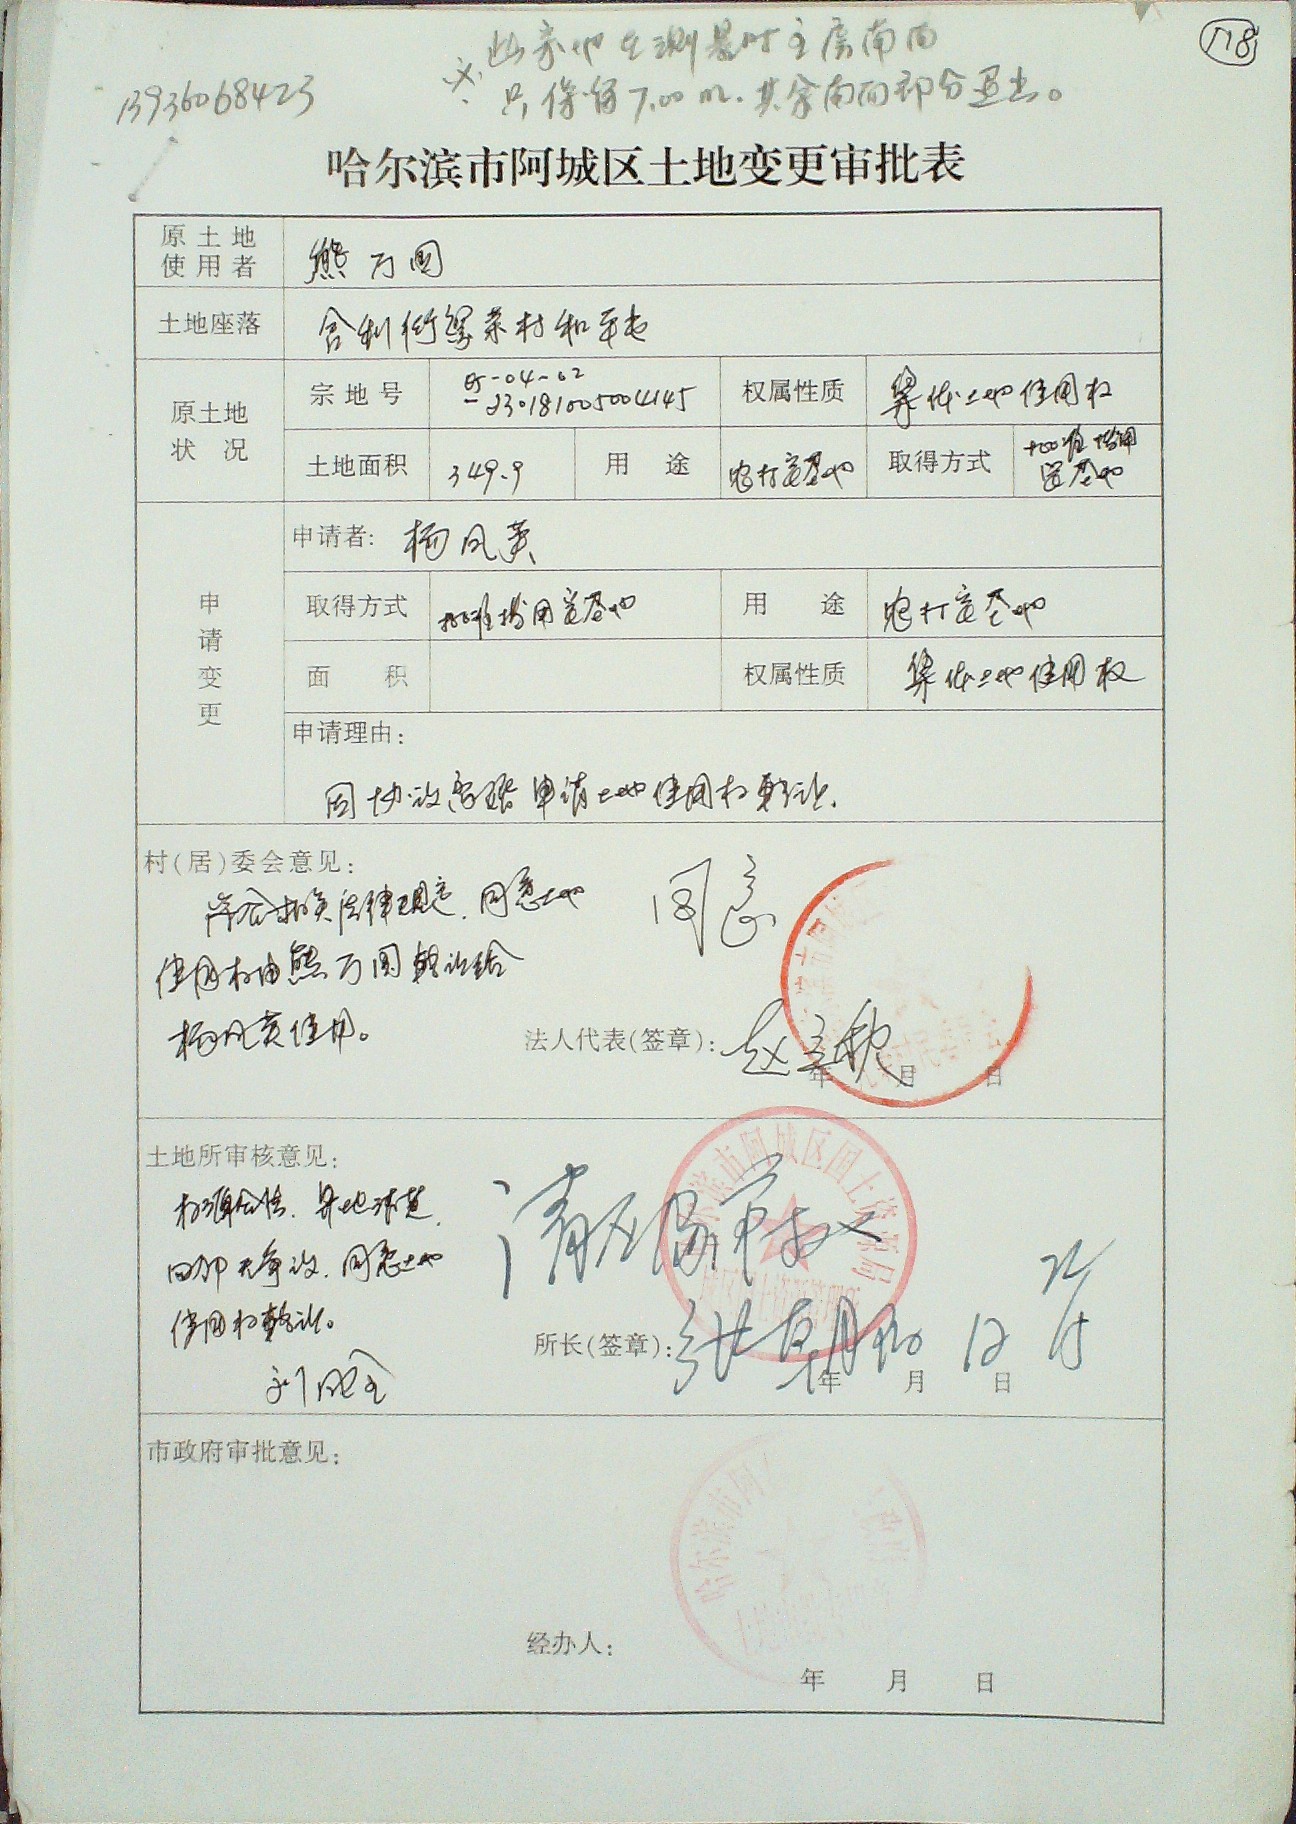 118
13936068423
此宗地在测量时主房南面
只保留7.00m.其余南面部分退出。
哈尔滨市阿城区土地变更审批表
原土地使用者 熊万国
土地座落 舍利街 村和平屯
原土地状况
宗地号 05-04-02-230181005004145 权属性质 集体土地使用权
土地面积 349.9 用途 农村宅基地 取得方式 批准拨用宅基地
申请变更
申请者: 杨凤英
取得方式 批准拨用宅基地 用途 农村宅基地
面积 权属性质 集体土地使用权
申请理由:
因协议离婚申请土地使用权转让.
村(居)委会意见:
符合相关法律规定.同意土地
使用权由熊万国转让给
杨凤英使用。
同意
法人代表(签章): 赵
年 月 日
土地所审核意见:
权源合法.界地清楚.
四邻无争议.同意土地
使用权转让。
请区局审批
所长(签章): 张
年 月 日
哈尔滨市阿城区国土资源局
市政府审批意见:
哈尔滨市阿
经办人:
年 月 日